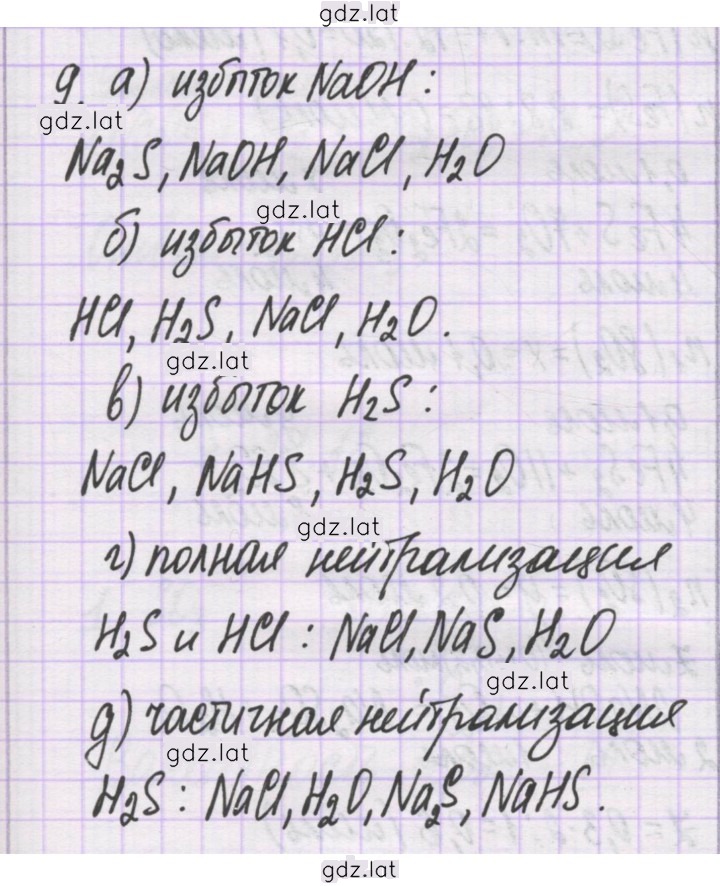 gdz.lat
9. а) избыток NaOH:
gdz.lat
Na₂S, NaOH, NaCl, H₂O
gdz.lat
б) избыток HCl:
HCl, H₂S, NaCl, H₂O.
gdz.lat
в) избыток H₂S:
NaCl, NaHS, H₂S, H₂O
gdz.lat
г) полная нейтрализация
H₂S и HCl: NaCl, NaS, H₂O
gdz.lat
д) частичная нейтрализация
gdz.lat
H₂S: NaCl, H₂O, Na₂S, NaHS.
gdz.lat